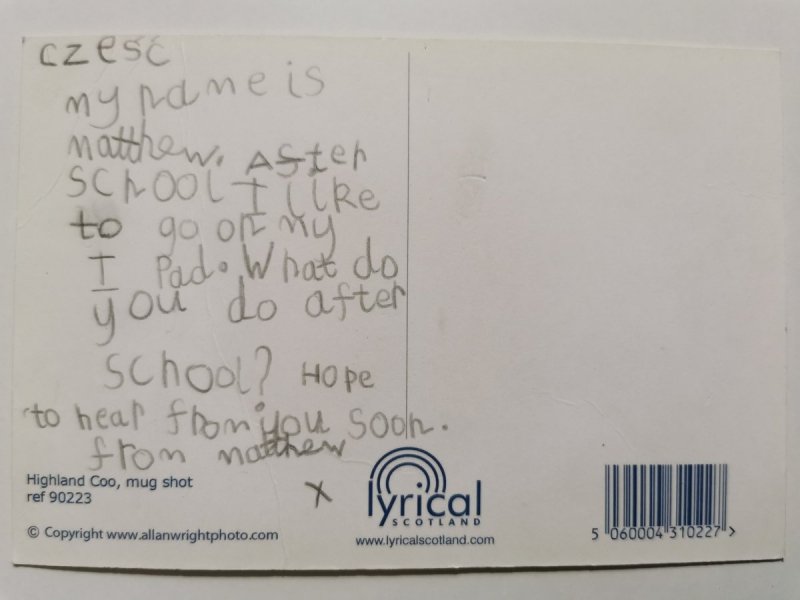 czesć
my name is
matthew. After
school I like
to go on my
I Pad. What do
you do after
school? Hope
to hear from you soon.
from matthew
x
Highland Coo, mug shot
ref 90223
© Copyright www.allanwrightphoto.com
lyrical
SCOTLAND
www.lyricalscotland.com
5 060004 310227 >